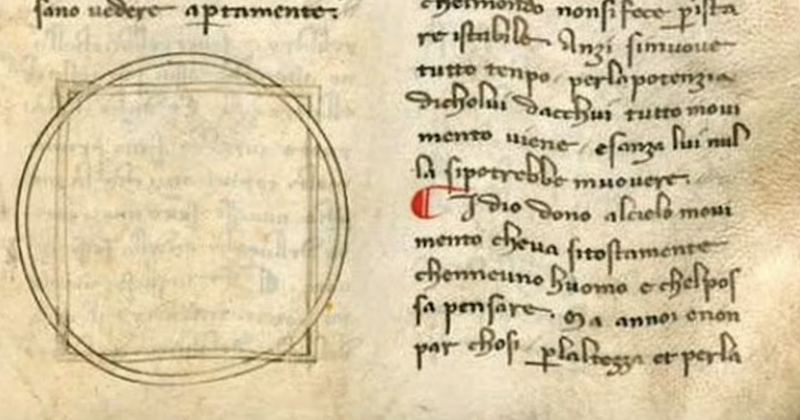 sano uedere aptamente.
chelmondo nonsi fece pista
re istabile Anzi simuoue
tutto tenpo perla potenzia
dicholui dacchui tutto moui
mento uiene esanza lui nul
la sipotrebbe muouere.
Idio dono alcielo moui
mento cheua sitostamente
chenneuno huomo e chelpos
sa pensare. Ma annoi enon
par chosi plaltezza et perla